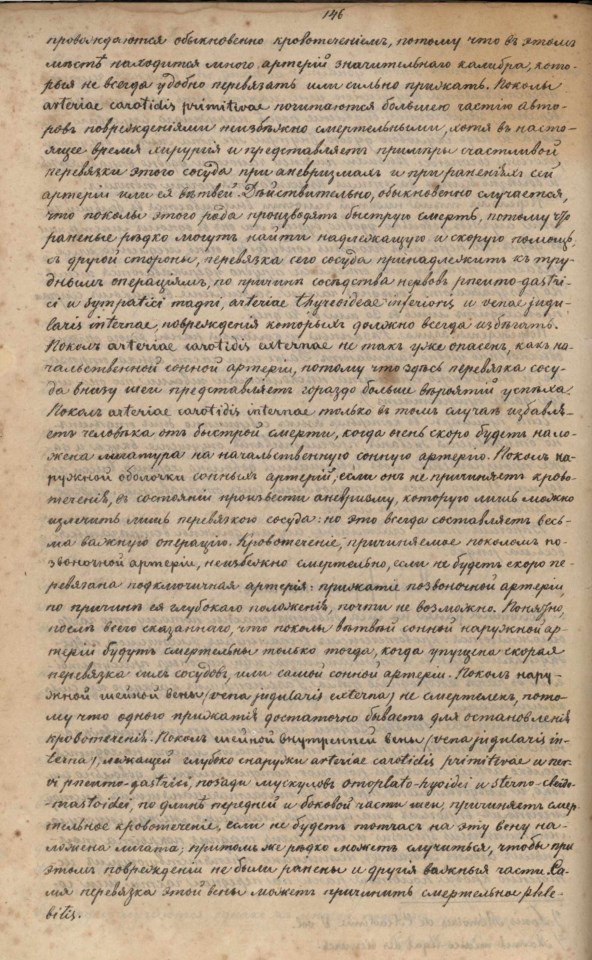 146
провождаются обыкновенно кровотеченіемъ, потому что въ этомъ
мѣстѣ находится много артерій значительнаго калибра, кото-
рыя не всегда удобно перевязать или сильно прижать. Поколы
arteriae carotidis primitivae почитаются большею частію авто-
ровъ поврежденіями неизбѣжно смертельными, хотя въ насто-
ящее время хирургія и представляетъ примѣры счастливой
перевязки этого сосуда при аневризмахъ и при раненіяхъ сей
артеріи или ея вѣтвей. Дѣйствительно, обыкновенно случается,
что поколы этого рода производятъ быструю смерть, потому что
раненые рѣдко могутъ найти надлежащую и скорую помощь;
съ другой стороны, перевязка сего сосуда принадлежитъ къ тру-
днымъ операціямъ, по причинѣ сосѣдства нервовъ pneumo-gastri-
ci и sympatici magni, arteriae thyreoideae inferioris и venae jugu-
laris internae, поврежденія которыхъ должно всегда избѣгать.
Поколъ arteriae carotidis externae не такъ уже опасенъ, какъ на-
чальственной сонной артеріи, потому что здѣсь перевязка сосу-
да внизу шеи представляетъ гораздо больше вѣроятій успѣха.
Поколъ arteriae carotidis internae только въ томъ случаѣ избавля-
етъ человѣка отъ быстрой смерти, когда очень скоро будетъ нало-
жена лигатура на начальственную сонную артерію. Поколъ на-
ружной оболочки сонныхъ артерій, если онъ не причиняетъ крово-
теченія, въ состояніи произвести аневризму, которую лишь можно
излечить лишь перевязкою сосуда: но это всегда составляетъ весь-
ма важную операцію. Кровотеченіе, причиняемое поколомъ по-
звоночной артеріи, неизбежно смертельно, если не будетъ скоро пе-
ревязана подключичная артерія: прижатіе позвоночной артеріи,
по причинѣ ея глубокаго положенія, почти не возможно. Понятно,
послѣ всего сказаннаго, что поколы вѣтвей сонной наружной ар-
терій будутъ смертельны только тогда, когда упущена скорая
перевязка сихъ сосудовъ, или самой сонной артеріи. Поколъ нару-
жной шейной вены (vena jugularis externa) не смертеленъ, пото-
му что одного прижатія достаточно бываетъ для остановленія
кровотеченія. Поколъ шейной внутренней вены (vena jugularis in-
terna), лежащей глубоко снаружи arteriae carotidis primitivae и ner-
vi pneumo-gastrici, позади мускуловъ omoplato-hyoidei и sterno-cleido-
-mastoidei, по длинѣ передней и боковой части шеи, причиняетъ смер-
тельное кровотеченіе, если не будетъ тотчасъ на эту вену на-
ложена лигата; притомъ же рѣдко можетъ случиться, чтобы при
этомъ поврежденіи не были ранены и другія важныя части. Са-
мая перевязка этой вены можетъ причинить смертельное phle-
bitis.